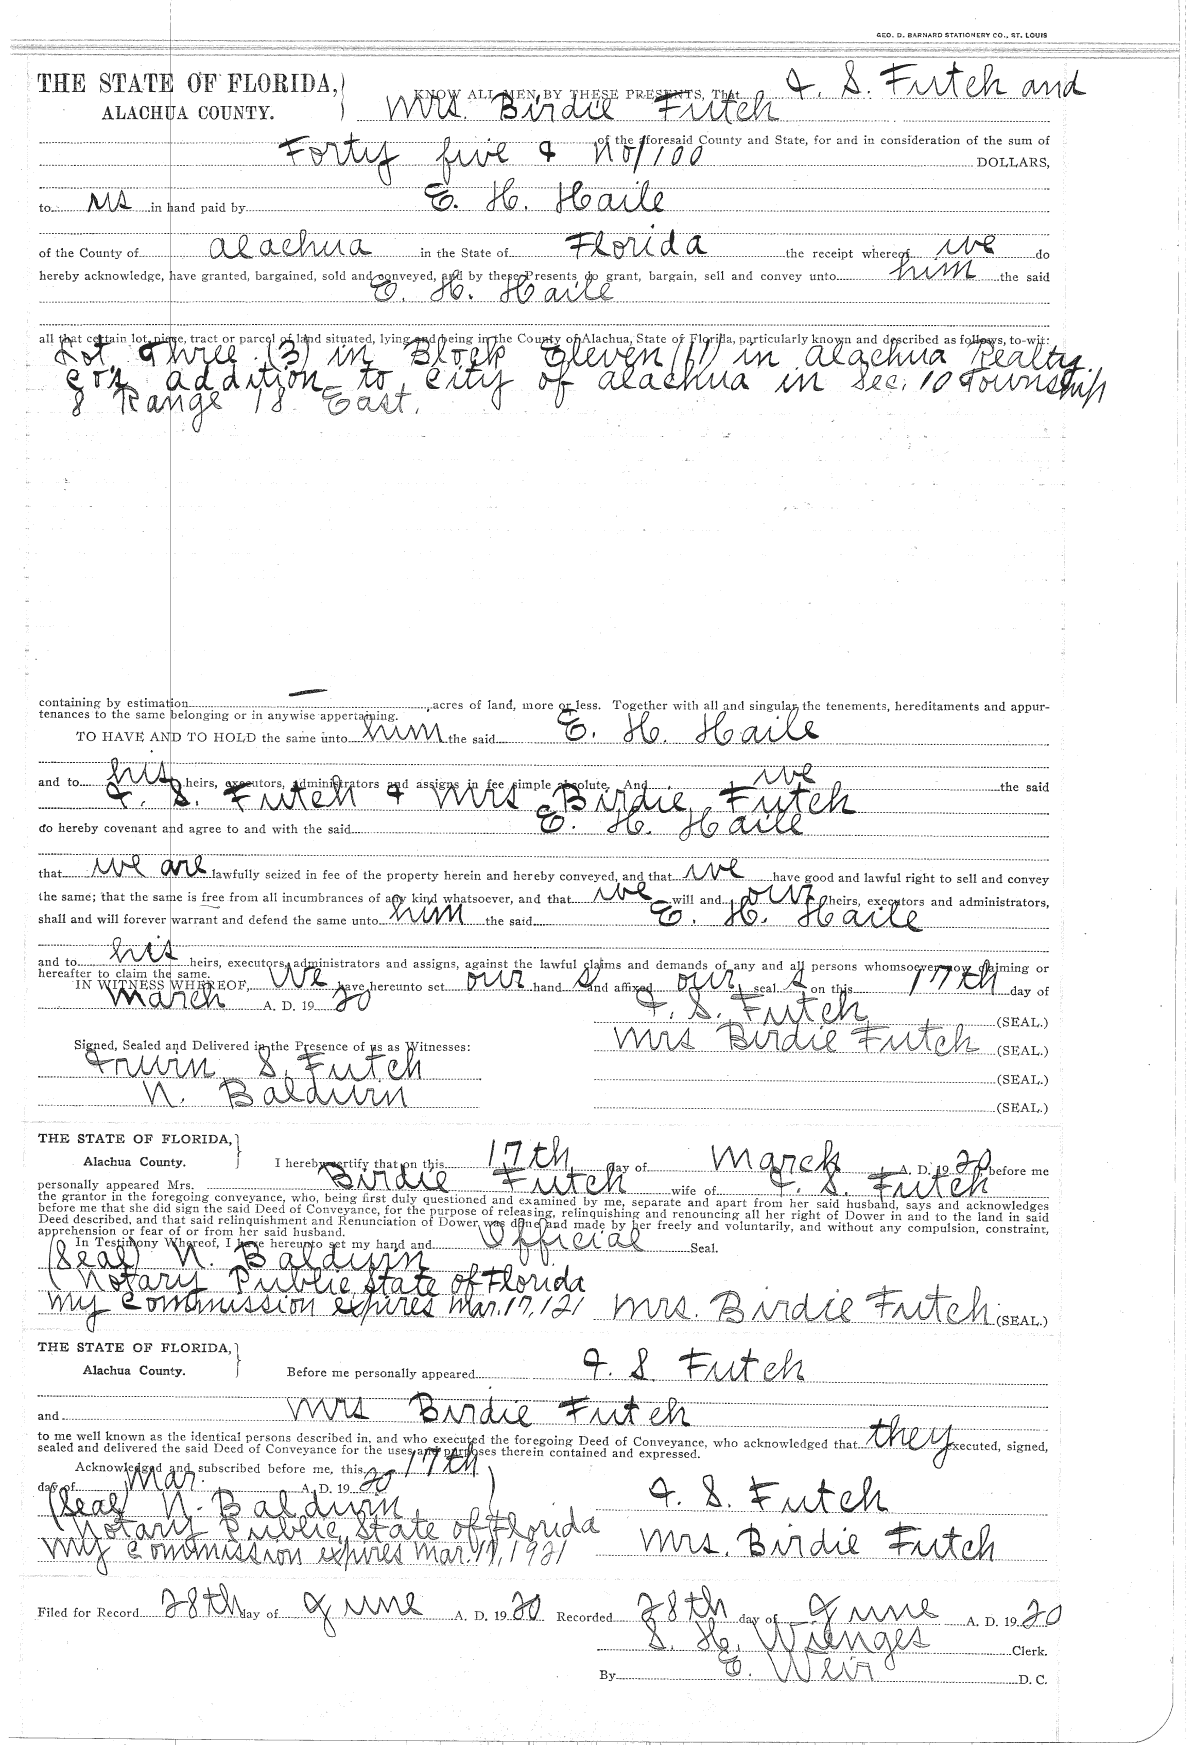 GEO. D. BARNARD STATIONERY CO., ST. LOUIS
THE STATE OF FLORIDA,
ALACHUA COUNTY.
KNOW ALL MEN BY THESE PRESENTS, That S. Futch and
Mrs. Birdie Futch
of the aforesaid County and State, for and in consideration of the sum of
Forty five & no/100 DOLLARS,
to us in hand paid by E. H. Haile
of the County of Alachua in the State of Florida the receipt whereof we do
hereby acknowledge, have granted, bargained, sold and conveyed, and by these Presents do grant, bargain, sell and convey unto him the said
E. H. Haile
all that certain lot, piece, tract or parcel of land situated, lying and being in the County of Alachua, State of Florida, particularly known and described as follows, to-wit:
Lot Three (3) in Block Eleven (11) in Alachua Realty
addition to City of Alachua in Sec. 10 Township
8 Range 18 East.
containing by estimation — acres of land, more or less. Together with all and singular the tenements, hereditaments and appur-
tenances to the same belonging or in anywise appertaining.
TO HAVE AND TO HOLD the same unto him the said E. H. Haile
and to his heirs, executors, administrators and assigns in fee simple absolute. And we the said
S. Futch & Mrs Birdie Futch
do hereby covenant and agree to and with the said E. H. Haile
that we are lawfully seized in fee of the property herein and hereby conveyed, and that we have good and lawful right to sell and convey
the same; that the same is free from all incumbrances of any kind whatsoever, and that we will and our heirs, executors and administrators,
shall and will forever warrant and defend the same unto him the said E. H. Haile
and to his heirs, executors, administrators and assigns, against the lawful claims and demands of any and all persons whomsoever now claiming or
hereafter to claim the same.
IN WITNESS WHEREOF, We have hereunto set our hand s and affixed our seal s on this 17th day of
March A. D. 19 20
S. Futch (SEAL.)
Mrs Birdie Futch (SEAL.)
Signed, Sealed and Delivered in the Presence of us as Witnesses:
Irwin S. Futch
(SEAL.)
N. Baldwin
(SEAL.)
THE STATE OF FLORIDA,
Alachua County.
I hereby certify that on this 17th day of March A. D. 19 20 before me
personally appeared Mrs. Birdie Futch wife of S. Futch
the grantor in the foregoing conveyance, who, being first duly questioned and examined by me, separate and apart from her said husband, says and acknowledges
before me that she did sign the said Deed of Conveyance, for the purpose of releasing, relinquishing and renouncing all her right of Dower in and to the land in said
Deed described, and that said relinquishment and Renunciation of Dower was done and made by her freely and voluntarily, and without any compulsion, constraint,
apprehension or fear of or from her said husband.
In Testimony Whereof, I have hereunto set my hand and Official Seal.
(Seal) N. Baldwin
Notary Public State of Florida
My Commission expires Mar. 17, 121
Mrs. Birdie Futch (SEAL.)
THE STATE OF FLORIDA,
Alachua County.
Before me personally appeared S Futch
and Mrs Birdie Futch
to me well known as the identical persons described in, and who executed the foregoing Deed of Conveyance, who acknowledged that they executed, signed,
sealed and delivered the said Deed of Conveyance for the uses and purposes therein contained and expressed.
Acknowledged and subscribed before me, this 17th
day of Mar. A. D. 19 20
(Seal) N. Baldwin
Notary Public, State of Florida
My Commission expires Mar. 17, 1921
S. Futch
Mrs. Birdie Futch
Filed for Record 28th day of June A. D. 19 20 Recorded 28th day of June A. D. 19 20
S. H. Wienges Clerk.
By E. Weir D. C.